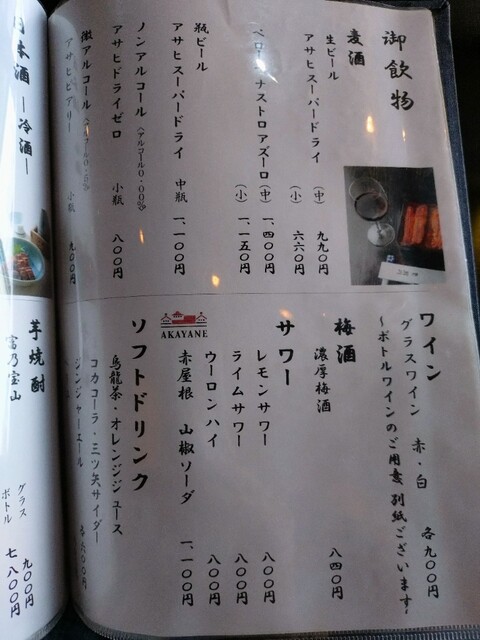 御飲物
麦酒
生ビール
アサヒスーパードライ (中) 九九〇円
(小) 六六〇円
ペローナ ナストロアズーロ (中) 一、四〇〇円
(小) 一、一五〇円
瓶ビール
アサヒスーパードライ 中瓶 一、一〇〇円
ノンアルコール (アルコール0.00%)
アサヒドライゼロ 小瓶 八〇〇円
微アルコール (アルコール0.5%)
アサヒビアリー 小瓶 九〇〇円
ワイン
グラスワイン 赤・白 各九〇〇円
〜ボトルワインのご用意別紙ございます!
梅酒
濃厚梅酒 八四〇円
サワー
レモンサワー 八〇〇円
ライムサワー 八〇〇円
ウーロンハイ 八〇〇円
AKAYANE
赤屋根 山椒ソーダ 一、一〇〇円
ソフトドリンク
烏龍茶・オレンジジュース
コカコーラ・三ツ矢サイダー
ジンジャーエール 各六〇〇円
日本酒 ―冷酒―
芋焼酎
富乃宝山
グラス 九〇〇円
ボトル 七、八〇〇円